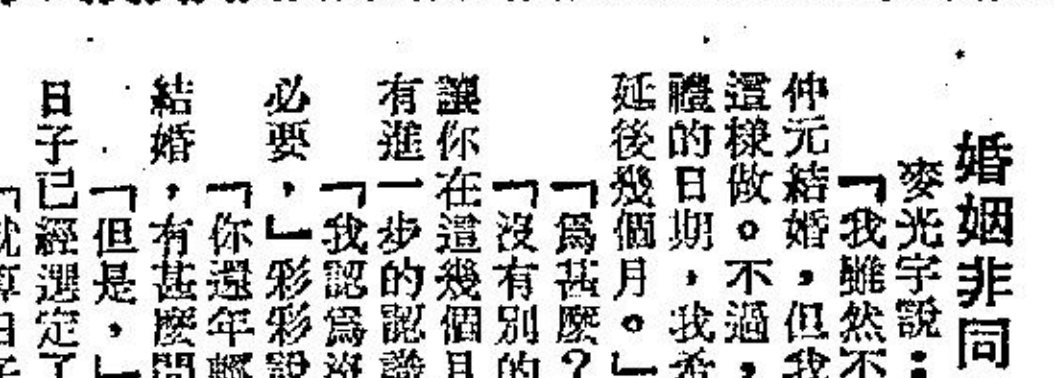 婚姻非同
麥光宇說：
「我雖然不
仲元結婚，但我
這樣做。不過，
禮的日期，我希
延後幾個月。」
「爲甚麼？
「沒有別的
讓你在這幾個月
有進一步的認識
「我認爲沒
必要，」彩彩說
「你還年輕
結婚，有甚麼問
「但是，」
日子已經選定了
「就算日子